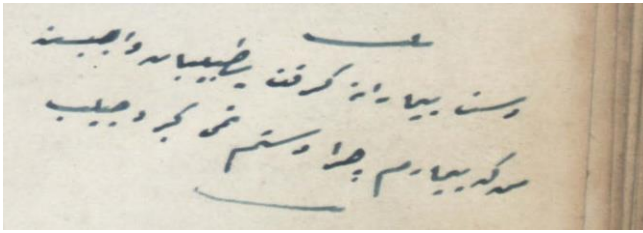 دست بیماران گرفتن بر طبیبان واجبست
من که بیمارم چرا دستم نمی گیرد حبیب